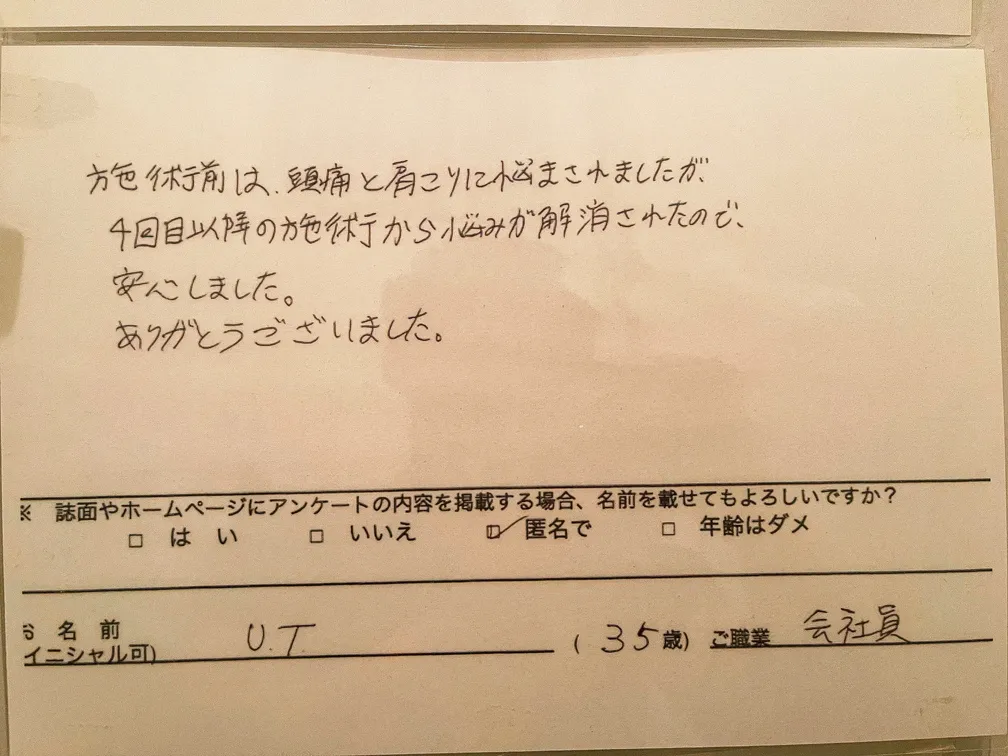 施術前は、頭痛と肩こりに悩まされましたが、
4回目以降の施術から悩みが解消されたので、
安心しました。
ありがとうございました。
※ 誌面やホームページにアンケートの内容を掲載する場合、名前を載せてもよろしいですか？
□ は い □ いいえ ☑ 匿名で □ 年齢はダメ
お 名 前 U.T (35歳) ご職業 会社員
イニシャル可)